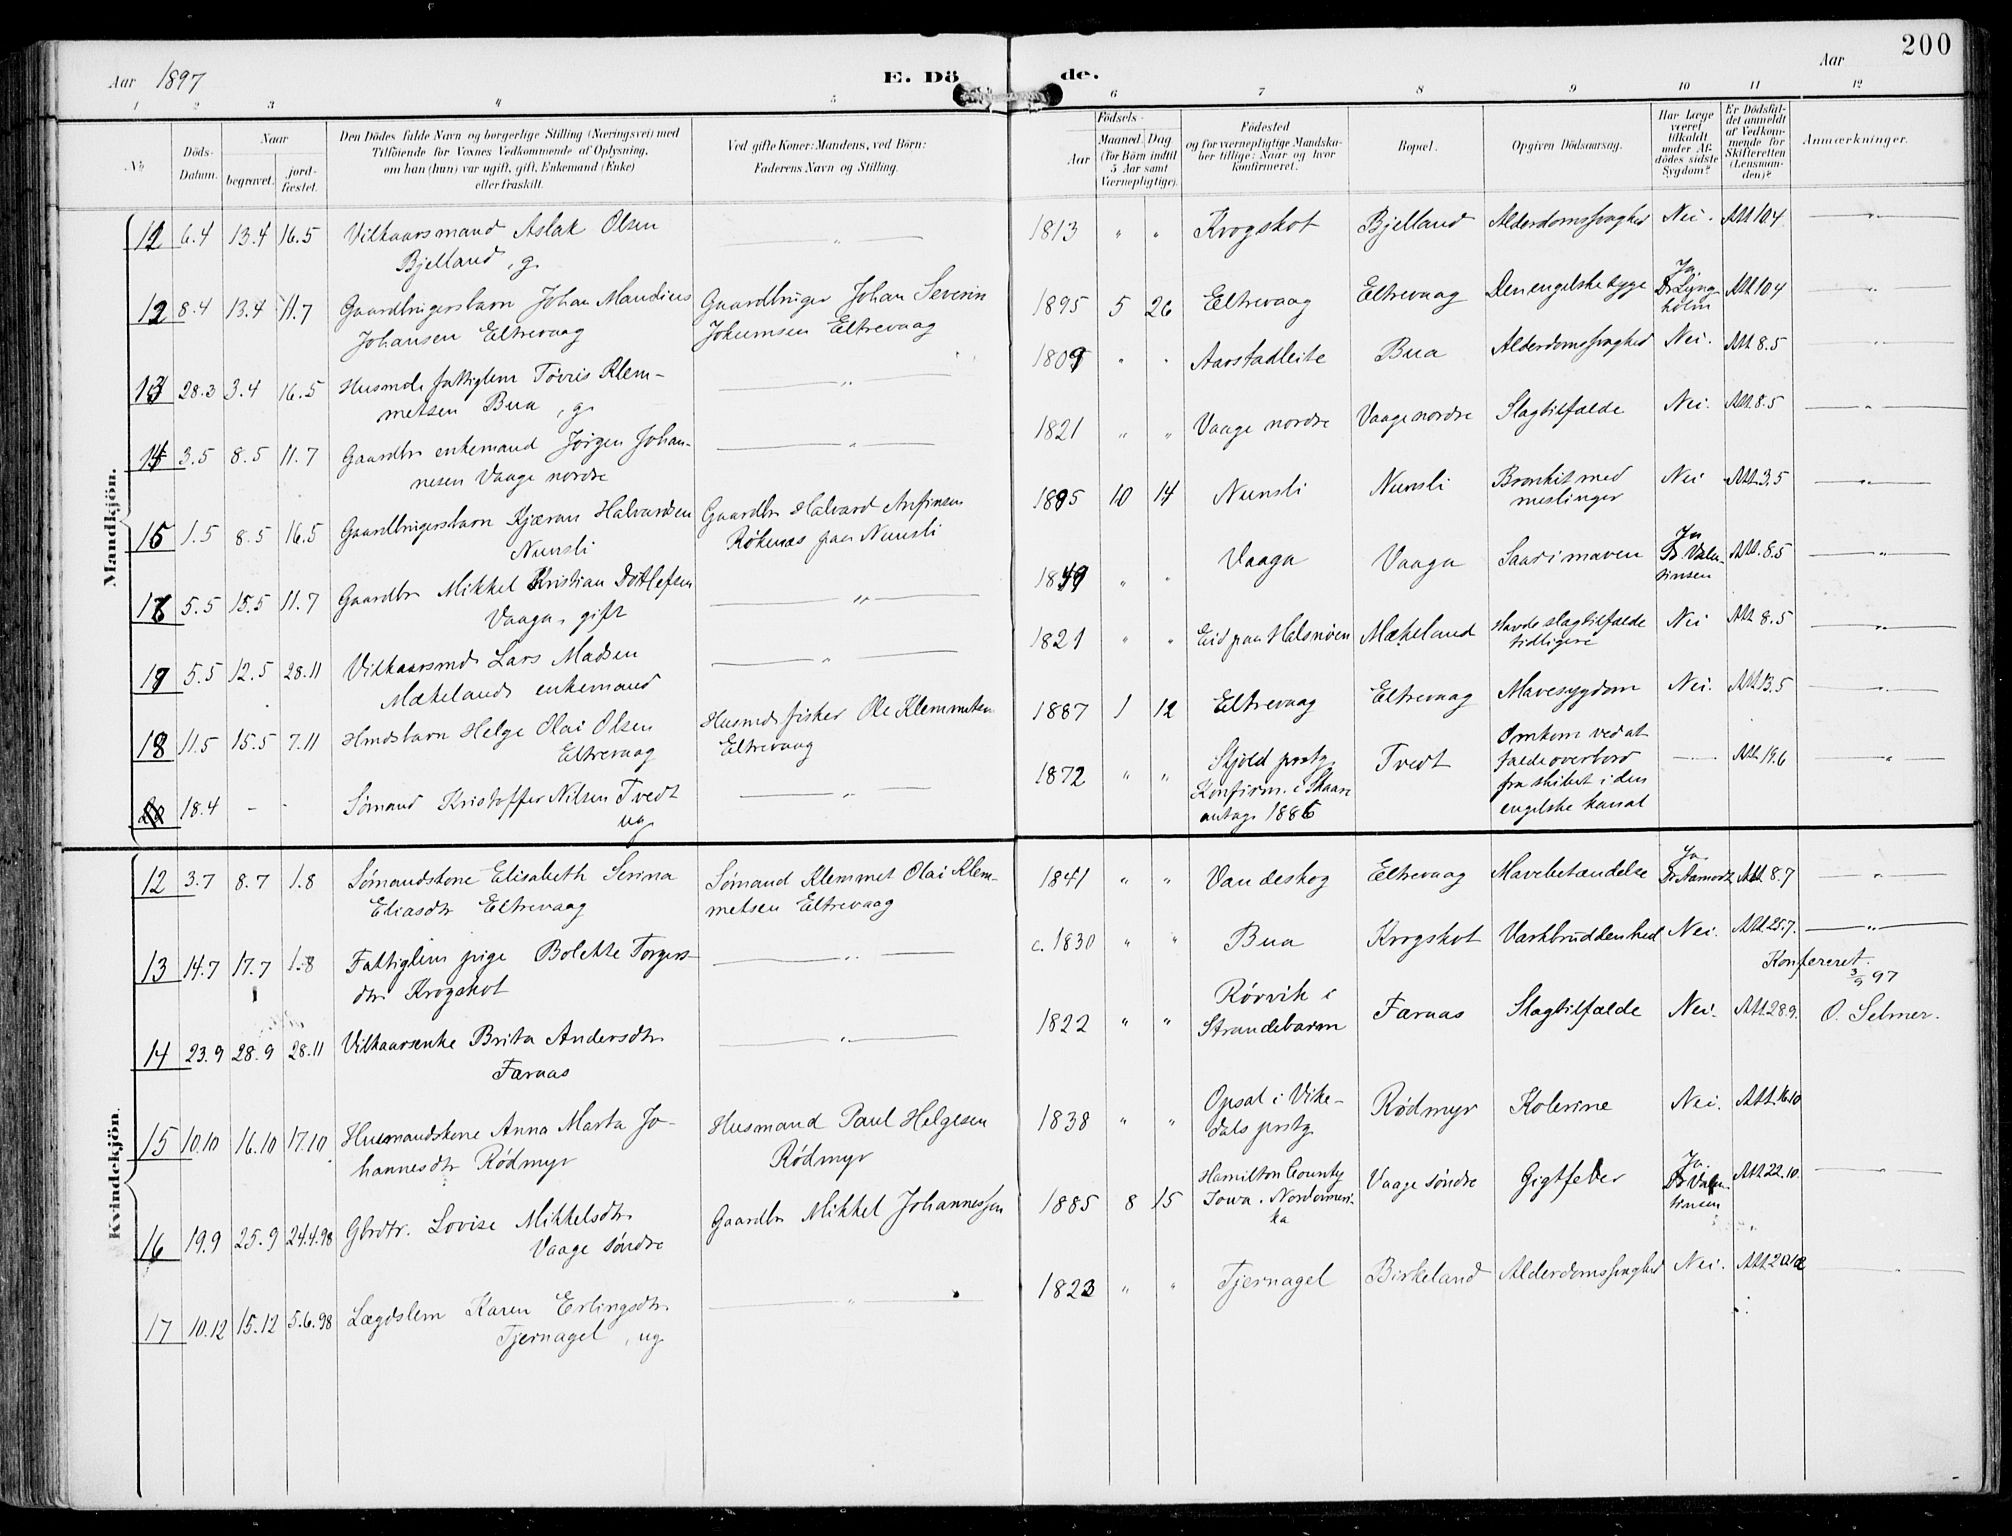 200
Aar 1897
E. Dö de.
Aar
1 2 3 4 5 6 7 8 9 10 11 12
No
Döds-Datum.
Naar
begravet.
jordfæstet.
Den Dödes fulde Navn og borgerlige Stilling (Næringsvei) med
Tilföiende for Voxnes Vedkommende af Oplysning,
om han (hun) var ugift, gift, Enkemand (Enke)
eller fraskilt.
Ved gifte Koner: Mandens, ved Börn:
Faderens Navn og Stilling.
Födsels-
Aar
Maaned. Dag
(for Börn indtil
5 Aar samt
Værnepligtige).
Födested
og for værnepligtige Mandskaber tillige: Naar og hvor
konfirmeret.
Bopæl.
Opgiven Dödsaarsag.
Har Læge
været
tilkaldt
under Afdödes sidste
Sygdom?
Er Dödsfaldet anmeldt
af Vedkommende for
Skifteretten
(Lensmanden)?
Anmærkninger.
Mandkjön.
6.4 13.4 16.5 Vilkaarsmand Aslak Olsen Bjelland, g. — " — 1813 " " Krogskot Bjelland Alderdomssvaghed Nei. Att. 10.4 — " —
12 8.4 13.4 11.7 Gaardbrugersbarn Johan Mandius Johansen Eltrevaag Gaardbruger Johan Severin Jokumsen Eltrevaag 1895 5 26 Eltrevaag Eltrevaag Den engelske syge Ja Dr Lyngholm Att. 10.4 — " —
13 28.3 3.4 16.5 Husmd. fattiglem Tøvris Klemmetsen Bua, g. — " — 1809 " " Aarstadleite Bua Alderdomssvaghed Nei. Att. 8.5 — " —
3.5 8.5 11.7 Gaardbr enkemand Jørgen Johannesen Vaage nordre — " — 1821 " " Vaage nordre Vaage nordre Slagtilfælde Nei. Att. 8.5 — " —
15 1.5 8.5 16.5 Gaardbrugersbarn Kjæran Halvardsen Nunsli Gaardbr Halvard Anfinsen Røknæs paa Nunsli 1895 10 14 Nunsli Nunsli Bronkit med meslinger Nei Att. 3.5 — " —
16 5.5 15.5 11.7 Gaardbr Mikkel Kristian Ditlefsen Vaaga, gift — " — " " Vaaga Vaaga Saar i maven Ja Dr Valentinsen Att. 8.5 — " —
17 5.5 12.5 28.11 Vilkaarsmd Lars Madsen Mækeland enkemand — " — 1821 " " Eid paa Halsnøen Mækeland Havde slagtilfælde tidligere Nei Att. 8.5 — " —
18 11.5 15.5 7.11 Hmdsbarn Helge Olai Olsen Eltrevaag Husmd. fisker Ole Klemmetsen Eltrevaag 1887 1 12 Eltrevaag Eltrevaag Mavesygdom Nei. Att. 13.5 — " —
18.4 - - Sømand Kristoffer Nilsen Tvedt ug — " — 1872 " " Skjold prstg. Konfirm. i Skaare 1886 Tvedt Omkom ved at falde overbord fra skibet i den engelske kanal — Att. 19.6 — " —
Kvindekjön.
12 3.7 8.7 1.8 Sømandskone Elisabeth Serina Eliasdtr Eltrevaag Sømand Klemmet Olai Klemmetsen Eltrevaag 1841 " " Vandeskog Eltrevaag Mavebetændelse Ja Dr Aamodt Att. 8.7 — " —
13 14.7 17.7 1.8 Fattiglem pige Bolette Torgersdtr Krogskot — " — c. 1830 " " Bua Krogskot Værkbruddenhed Nei. Att. 25.7. — " —
Konfereret.
3/9 97
O. Selmer.
14 23.9 28.9 28.11 Vilkaarsenke Brita Andersdtr. Færaas — " — 1822 " " Rørvik i Strandebarm Færaas Slagtilfælde Nei. Att. 28.9.
15 10.10 16.10 17.10 Husmandskone Anna Marta Johannesdtr Rødmyr Husmand Paul Helgesen Rødmyr 1838 " " Opsal i Vikedals prstg. Rødmyr Kolerine Nei. Att. 16.10
16 19.9 25.9 24.4.98 Gbrdtr. Lovise Mikkelsdtr. Vaage søndre Gaardbr Mikkel Johannessen 1885 8 15 Hamilton County Iowa. Nordamerika Vaage søndre Gigtfeber Ja. Dr Valentinsen Att. 22.10. — " —
17 10.12 15.12 5.6.98 Lægdslem Karen Erlingsdtr. Tjernagel, ug — " — 1823 " " Tjernagel Birkeland Alderdomssvaghed Nei. Att. 20.12 — " —